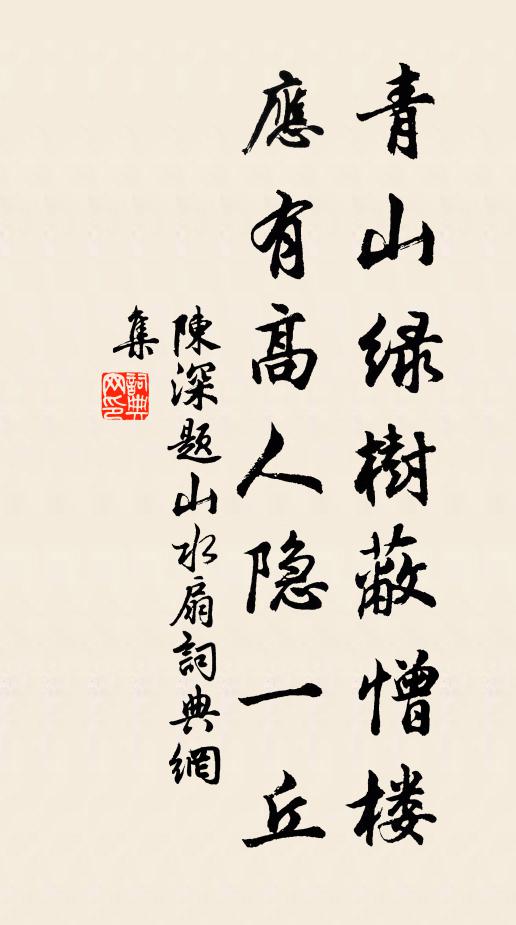 青山绿樹蔽憎楼
應有高人隐一丘
陳深题山水扇詞典網
集
詞典网印